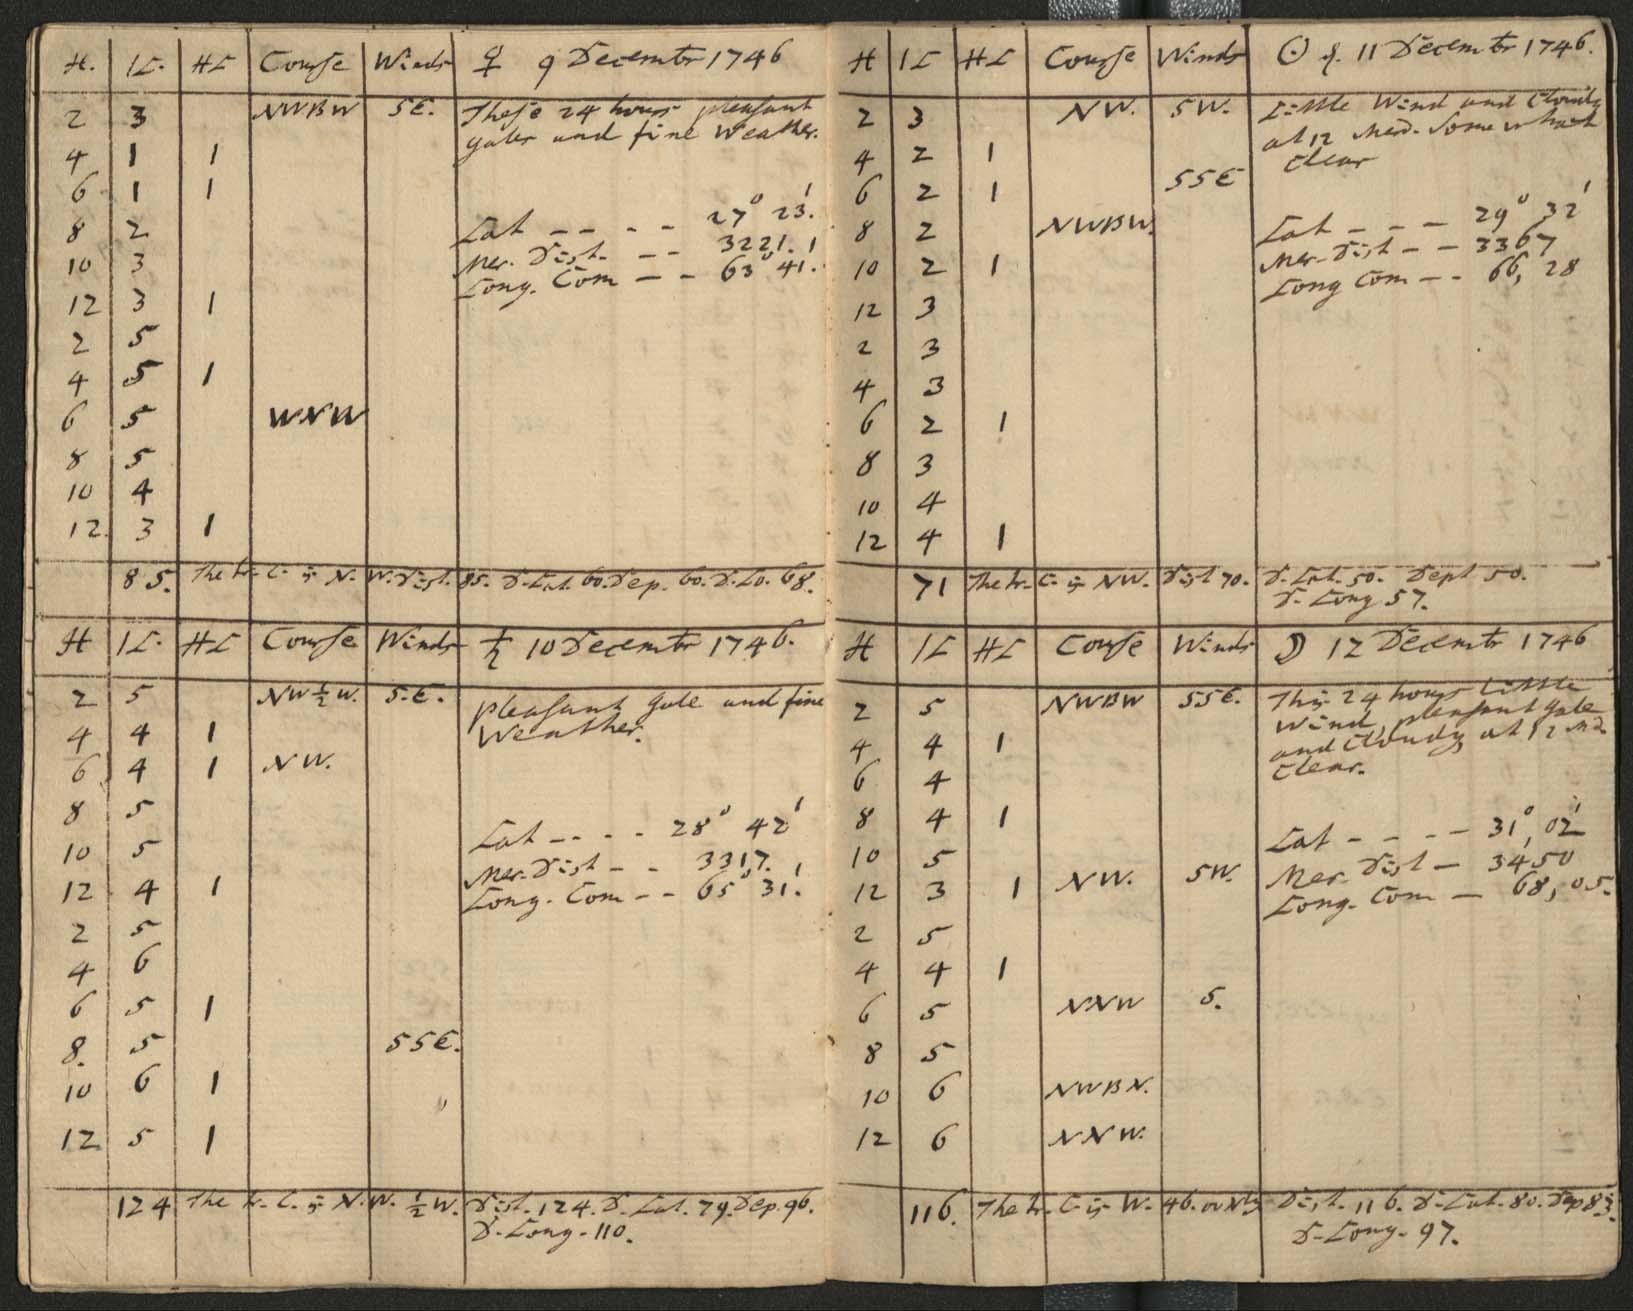 H. K. HK Course Winds ♀ 9 Decembr 1746
2 3 NWBW SE. These 24 hours pleasant
gales and fine Weather.
4 1 1
6 1 1
8 2 Lat -- - - 27° 23'.
10 3 Mer. Dist. -- 3221.1
12 3 1 Long. Com -- - 63° 41'.
2 5
4 5 1
6 5 WNW
8 5
10 4
12 3 1
85. The tr. C. is N.W. Dist. 85. D. Lat. 60. Dep. 60. D. Lo. 68.
H K. HK Course Winds ♄ 10 Decembr 1746.
2 5 NW ½ W. S.E. pleasant gale and fine
4 4 1 Weather.
6 4 1 NW.
8 5 Lat -- - - 28° 42'
10 5 Mer. Dist -- - 3317.
12 4 1 Long. Com -- 65° 31'.
2 5
4 6
6 5 1
8. 5 SSE.
10 6 1
12 5 1
124 The tr. C. is N.W. ½ W. Dist. 124. D. Lat. 79. Dep. 96.
D. Long. 110.
H K HK Course Winds ☉ 11 Decembr 1746.
2 3 NW. SW. Little Wind and Cloudy
at 12 Merd. Somewhat
4 2 1 Clear
6 2 1 SSE
8 2 NWBW. Lat - - - 29° 32'
10 2 1 Mer. Dist -- 3367
12 3 Long Com -- 66, 28
2 3
4 3
6 2 1
8 3
10 4
12 4 1
71 The tr. C. is NW. Dist 70. D. Lat. 50. Dept 50.
D. Long 57.
H K HK Course Winds ☽ 12 Decembr 1746
2 5 NWBW SSE. This 24 hours Little
Wind, pleasant gale
4 4 1 and Cloudy at 12 Md.
6 4 Clear.
8 4 1 Lat - - -- 31°, 02'
10 5 Mer. Dist - 3450
12 3 1 NW. SW. Long. Com - 68, 05.
2 5
4 4 1
6 5 NNW S.
8 5
10 6 NWBN.
12 6 NNW.
116. The tr. C. is W. 46. or Nly Dist. 116. D. Lat. 80. Dep 83.
D. Long. 97.